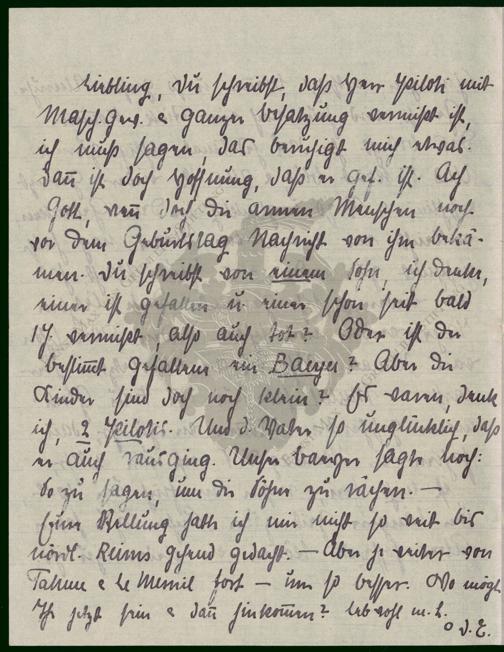 Liebling, Du schreibst, daß Herr Piloti mit
Masch.Gew. & ganzer Besatzung vermißt ist,
ich muß sagen, das beruhigt mich etwas.
Dan̄ ist doch Hoffnung, daß er gef. ist. Ach
Gott, wen̄ doch die armen Menschen noch
vor dem Geburtstag Nachricht von ihm bekä-
men. Du schreibst von einem Sohn, ich denke,
einer ist gefallen u einer schon seit bald
1 J. vermißt, also auch tot? Oder ist der
bestim̄t gefallene ein Baeyer? Aber die
Kinder sind doch noch klein? Es waren, denk
ich, 2 Pilotis. Und d. Vater so unglücklich, daß
er auch rausging. Unser baeyer sagte noch:
So zu sagen, um die Söhne zu rächen. —
Eure Stellung hatte ich mir nicht so weit bis
nördl. Reims gehend gedacht. — Aber je weiter von
Tahure & Le Mesnil fort — um so besser. Wo mögt
Ihr jetzt sein & dan̄ hinkom̄en? Leb wohl m. L.
D. E.